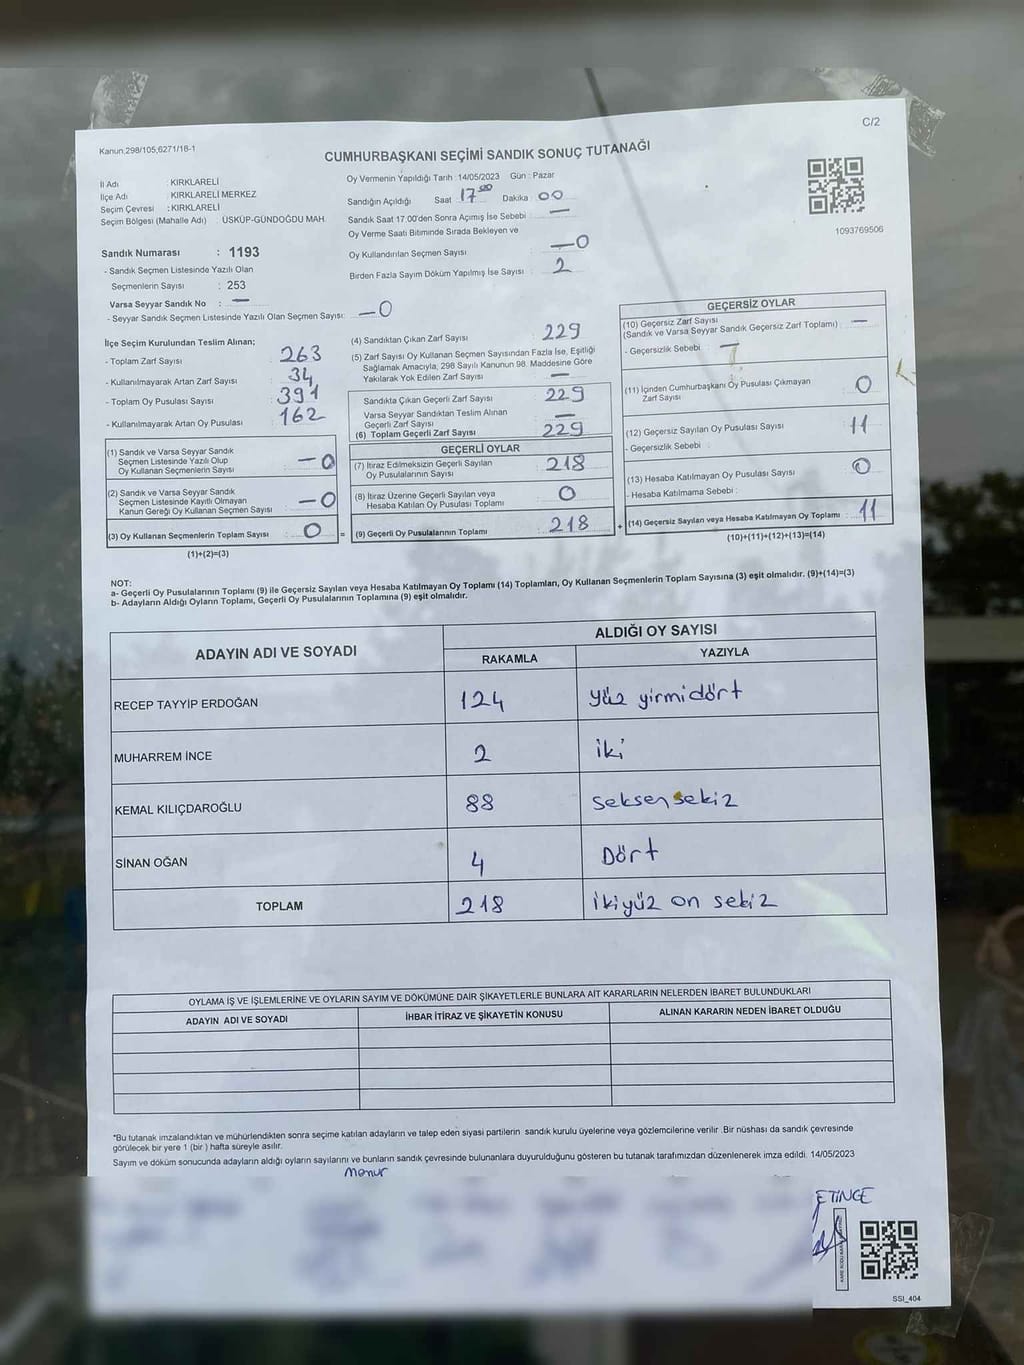 Kanun,298/105,6271/18-1
C/2
CUMHURBAŞKANI SEÇİMİ SANDIK SONUÇ TUTANAĞI
İl Adı : KIRKLARELİ
İlçe Adı : KIRKLARELİ MERKEZ
Seçim Çevresi : KIRKLARELİ
Seçim Bölgesi (Mahalle Adı) : ÜSKÜP-GÜNDOĞDU MAH.
Sandık Numarası : 1193
- Sandık Seçmen Listesinde Yazılı Olan
Seçmenlerin Sayısı : 253
Varsa Seyyar Sandık No : —
- Seyyar Sandık Seçmen Listesinde Yazılı Olan Seçmen Sayısı: —0
Oy Vermenin Yapıldığı Tarih : 14/05/2023 Gün : Pazar
Sandığın Açıldığı Saat 17 00 Dakika 00
Sandık Saat 17.00'den Sonra Açımış İse Sebebi : —
Oy Verme Saati Bitiminde Sırada Bekleyen ve
Oy Kullandırılan Seçmen Sayısı : —0
Birden Fazla Sayım Döküm Yapılmış İse Sayısı : 2
1093769506
İlçe Seçim Kurulundan Teslim Alınan;
- Toplam Zarf Sayısı : 263
- Kullanılmayarak Artan Zarf Sayısı : 34
- Toplam Oy Pusulası Sayısı : 391
- Kullanılmayarak Artan Oy Pusulası : 162
(1) Sandık ve Varsa Seyyar Sandık
Seçmen Listesinde Yazılı Olup
Oy Kullanan Seçmenlerin Sayısı : —0
(2) Sandık ve Varsa Seyyar Sandık
Seçmen Listesinde Kayıtlı Olmayan
Kanun Gereği Oy Kullanan Seçmen Sayısı : —0
(3) Oy Kullanan Seçmenlerin Toplam Sayısı : 0
(1)+(2)=(3)
=
(4) Sandıktan Çıkan Zarf Sayısı : 229
(5) Zarf Sayısı Oy Kullanan Seçmen Sayısından Fazla İse, Eşitliği
Sağlamak Amacıyla, 298 Sayılı Kanunun 98. Maddesine Göre
Yakılarak Yok Edilen Zarf Sayısı : —
Sandıkta Çıkan Geçerli Zarf Sayısı : 229
Varsa Seyyar Sandıktan Teslim Alınan
Geçerli Zarf Sayısı : —
(6) Toplam Geçerli Zarf Sayısı : 229
GEÇERLİ OYLAR
(7) İtiraz Edilmeksizin Geçerli Sayılan
Oy Pusulalarının Sayısı : 218
(8) İtiraz Üzerine Geçerli Sayılan veya
Hesaba Katılan Oy Pusulası Toplamı : 0
(9) Geçerli Oy Pusulalarının Toplamı : 218
+
GEÇERSİZ OYLAR
(10) Geçersiz Zarf Sayısı
(Sandık ve Varsa Seyyar Sandık Geçersiz Zarf Toplamı) : —
- Geçersizlik Sebebi : —
(11) İçinden Cumhurbaşkanı Oy Pusulası Çıkmayan
Zarf Sayısı : 0
(12) Geçersiz Sayılan Oy Pusulası Sayısı : 11
- Geçersizlik Sebebi :
(13) Hesaba Katılmayan Oy Pusulası Sayısı : 0
- Hesaba Katılmama Sebebi :
(14) Geçersiz Sayılan veya Hesaba Katılmayan Oy Toplamı : 11
(10)+(11)+(12)+(13)=(14)
NOT:
a- Geçerli Oy Pusulalarının Toplamı (9) ile Geçersiz Sayılan veya Hesaba Katılmayan Oy Toplamı (14) Toplamları, Oy Kullanan Seçmenlerin Toplam Sayısına (3) eşit olmalıdır. (9)+(14)=(3)
b- Adayların Aldığı Oyların Toplamı, Geçerli Oy Pusulalarının Toplamına (9) eşit olmalıdır.
ADAYIN ADI VE SOYADI
ALDIĞI OY SAYISI
RAKAMLA YAZIYLA
RECEP TAYYİP ERDOĞAN 124 yüz yirmidört
MUHARREM İNCE 2 iki
KEMAL KILIÇDAROĞLU 88 seksen sekiz
SİNAN OĞAN 4 Dört
TOPLAM 218 ikiyüz on sekiz
OYLAMA İŞ VE İŞLEMLERİNE VE OYLARIN SAYIM VE DÖKÜMÜNE DAİR ŞİKAYETLERLE BUNLARA AİT KARARLARIN NELERDEN İBARET BULUNDUKLARI
ADAYIN ADI VE SOYADI İHBAR İTİRAZ VE ŞİKAYETİN KONUSU ALINAN KARARIN NEDEN İBARET OLDUĞU
*Bu tutanak imzalandıktan ve mühürlendikten sonra seçime katılan adayların ve talep eden siyasi partilerin sandık kurulu üyelerine veya gözlemcilerine verilir .Bir nüshası da sandık çevresinde
görülecek bir yere 1 (bir ) hafta süreyle asılır.
Sayım ve döküm sonucunda adayların aldığı oyların sayılarını ve bunların sandık çevresinde bulunanlara duyurulduğunu gösteren bu tutanak tarafımızdan düzenlenerek imza edildi. 14/05/2023
Memur
SSI_404